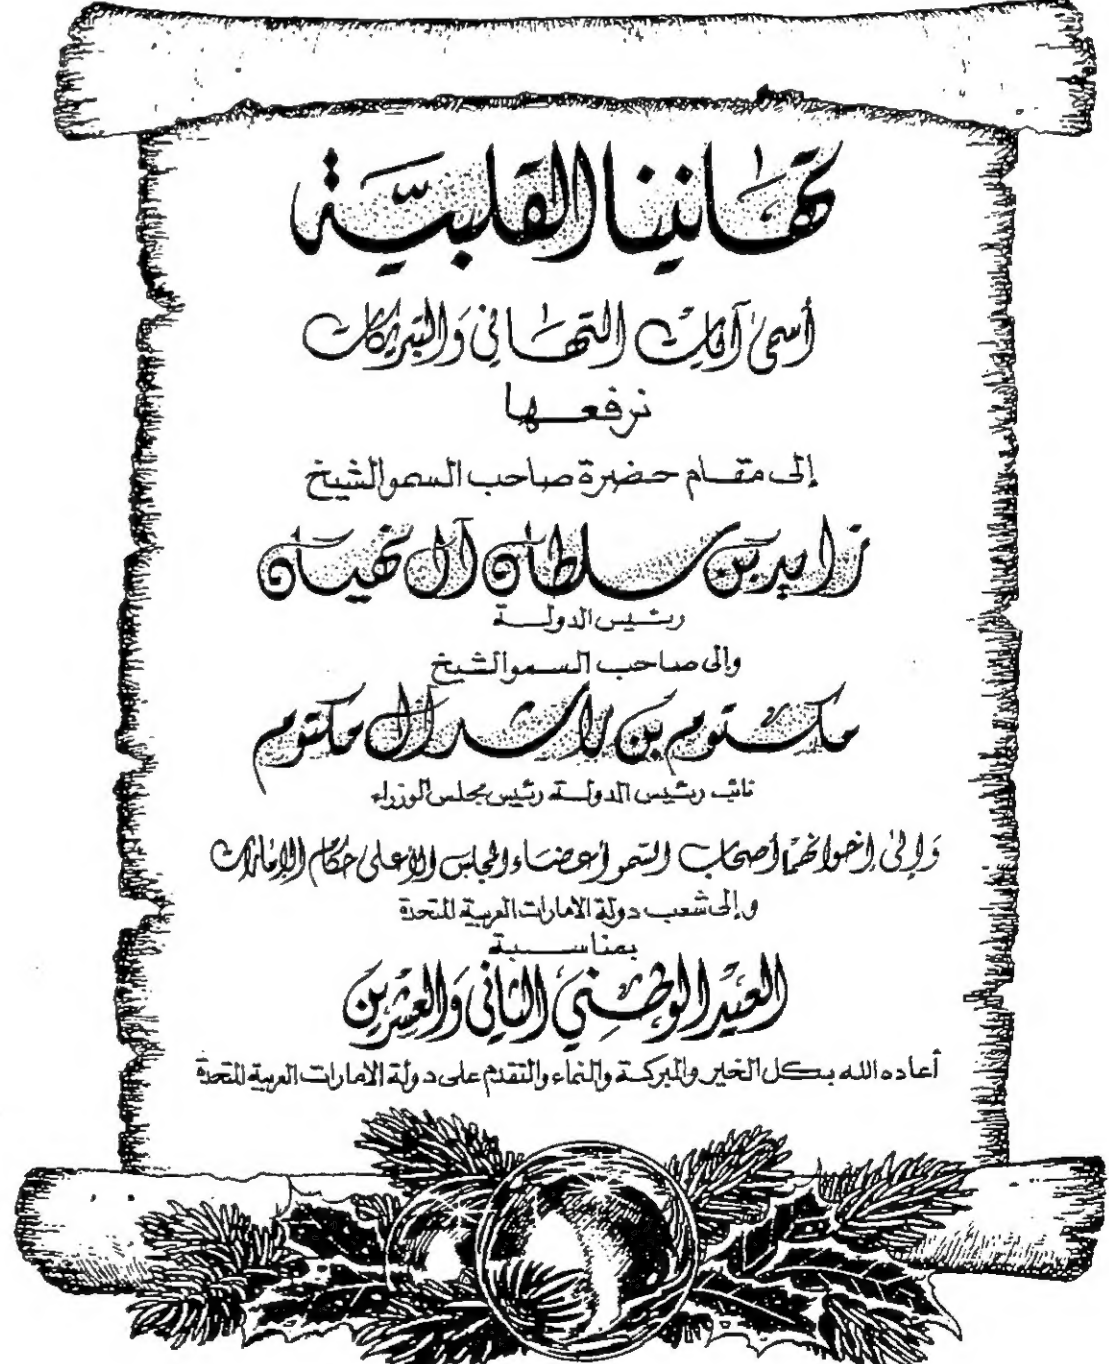 تهانينا القلبيّة
أسمىٰ آيات التهاني وَالتبريكات
نرفعها
إلى مقام حضرة صاحب السمو الشيخ
زايد بن سلطان آل نهيان
رئيس الدولة
وإلى صاحب السمو الشيخ
مكتوم بن راشد آل مكتوم
نائب رئيس الدولة رئيس مجلس الوزراء
وَإلى إخوانهمَا أصحاب السمو أعضاء المجلس الأعلى حكام الإمارات
وإلى شعب دولة الامارات العربية المتحدة
بمناسبة
العيد الوطني الثاني وَالعشرين
أعاده الله بكل الخير والبركة والنماء والتقدم على دولة الامارات العربية المتحدة